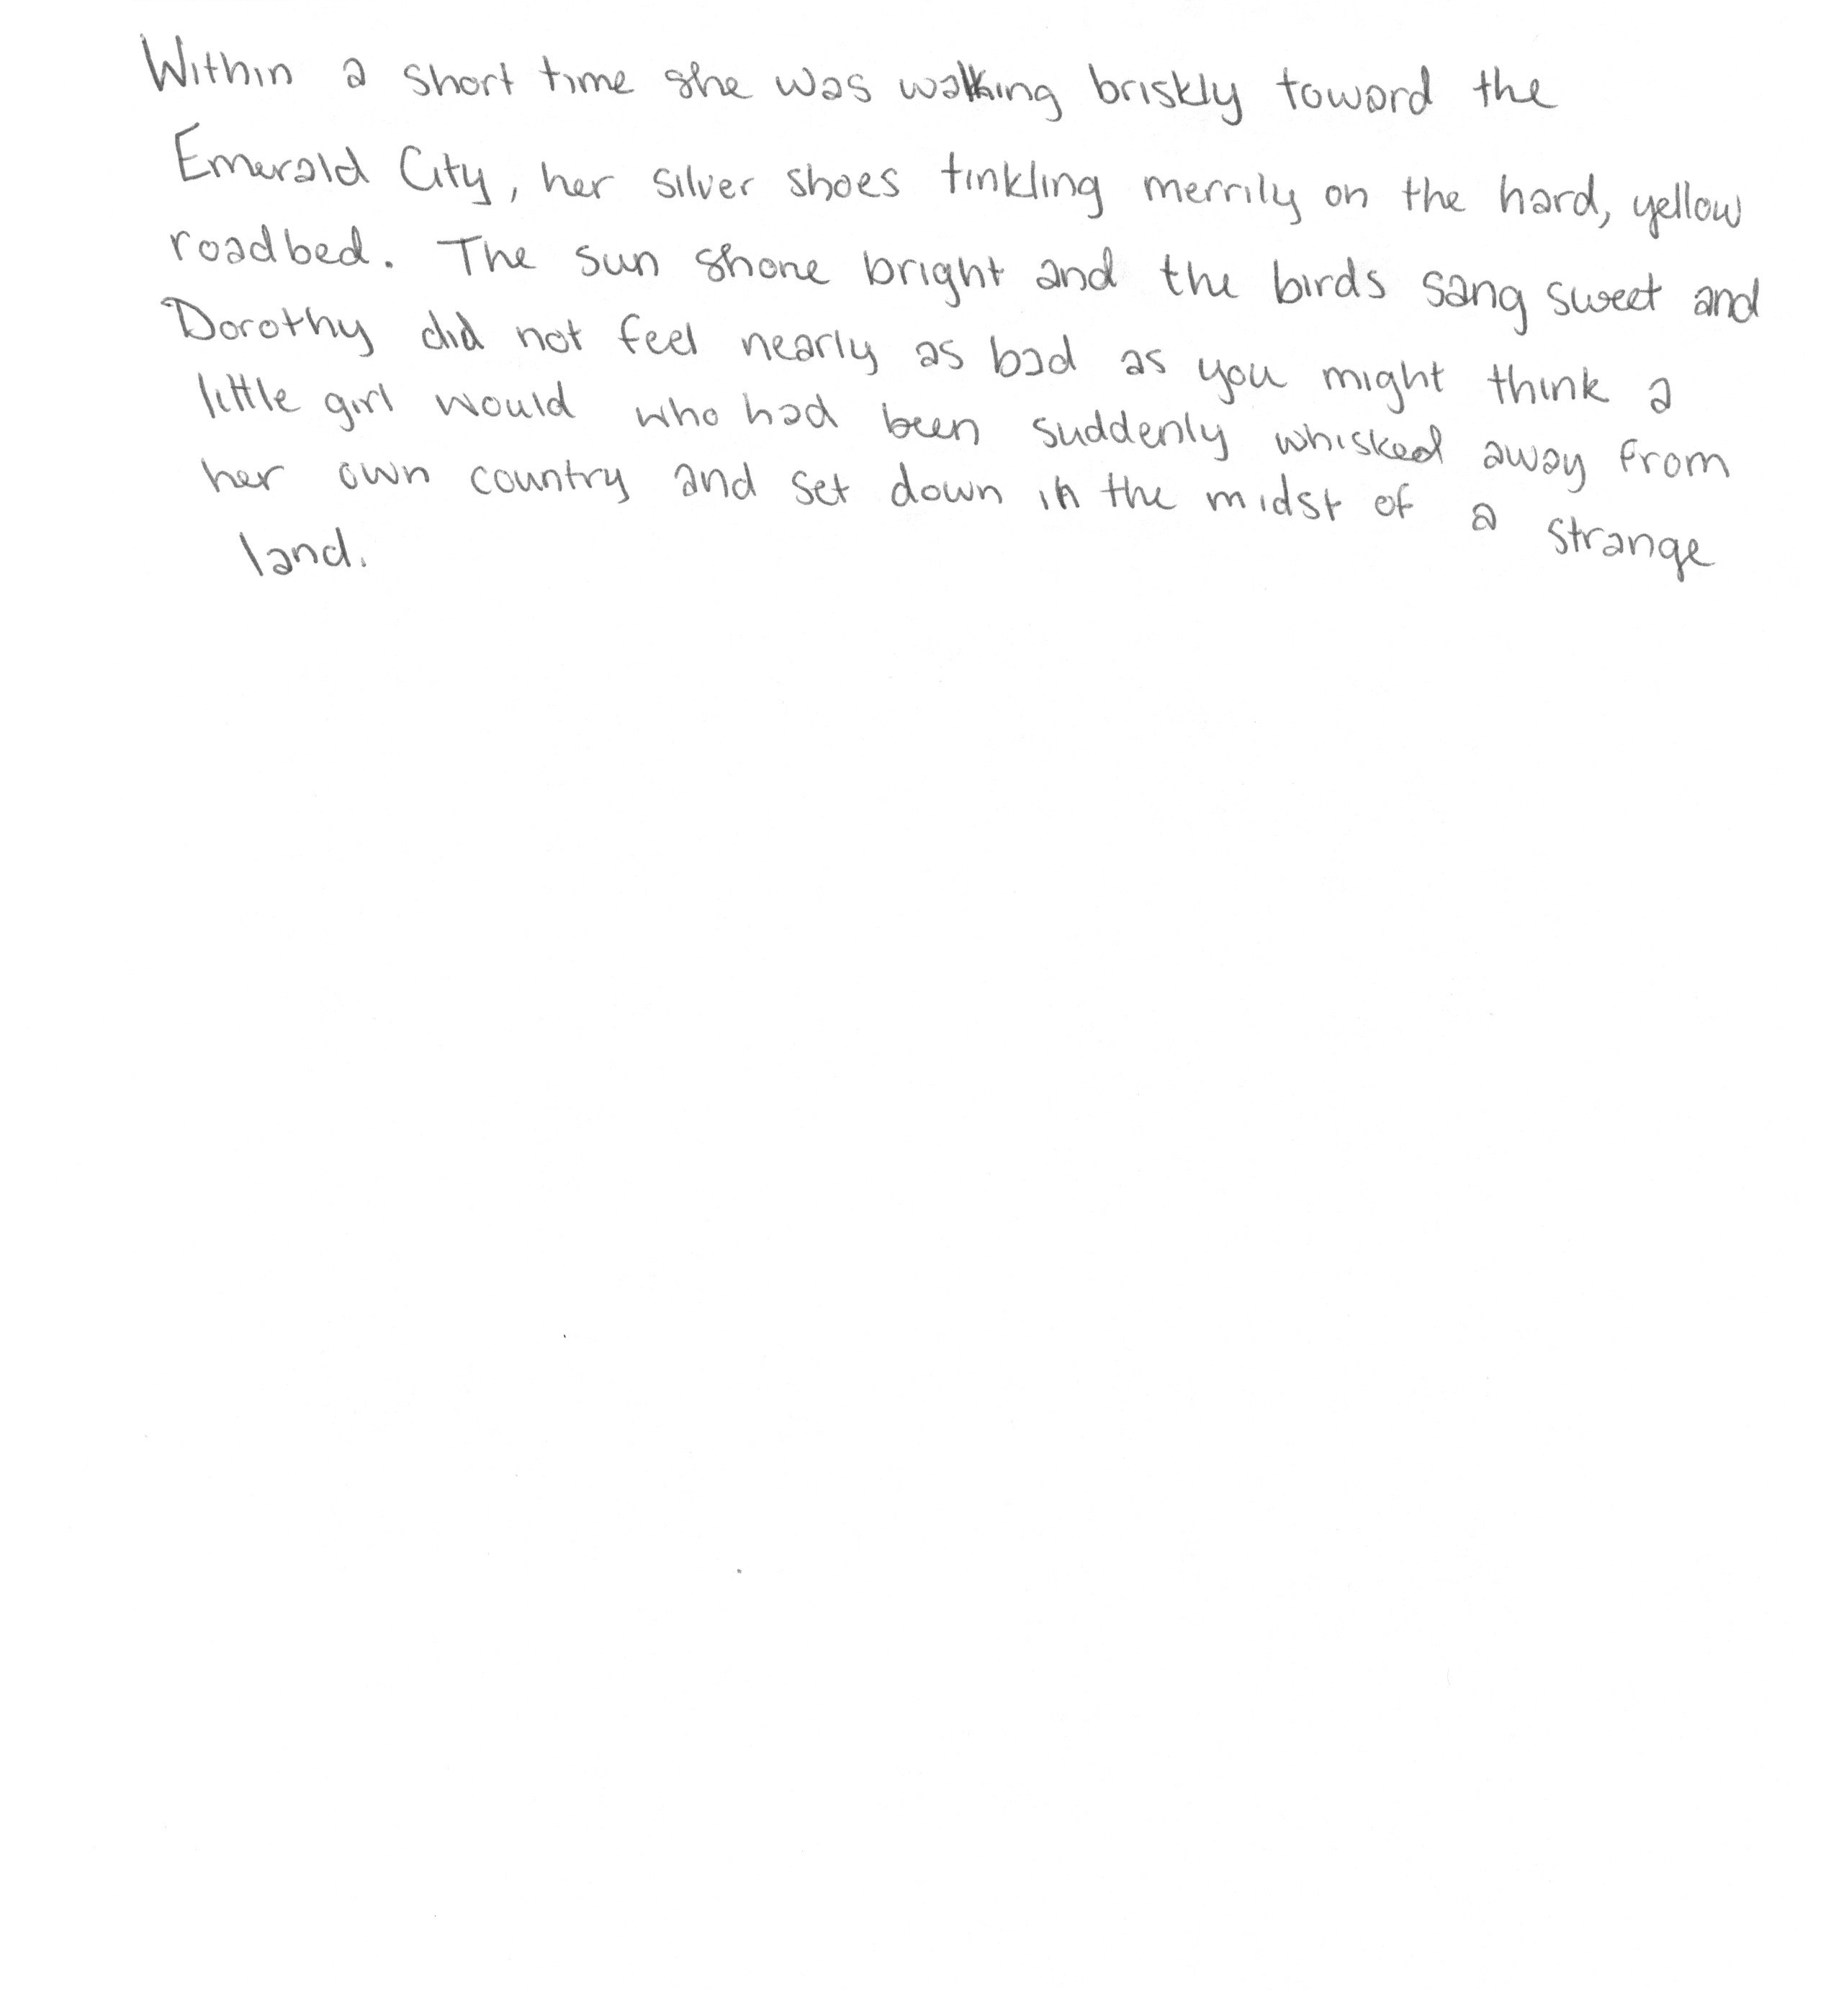 Within a short time she was walking briskly toward the
Emerald City, her silver shoes tinkling merrily on the hard, yellow
roadbed. The sun shone bright and the birds sang sweet and
Dorothy did not feel nearly as bad as you might think a
little girl would who had been suddenly whisked away from
her own country and set down in the midst of a strange
land.